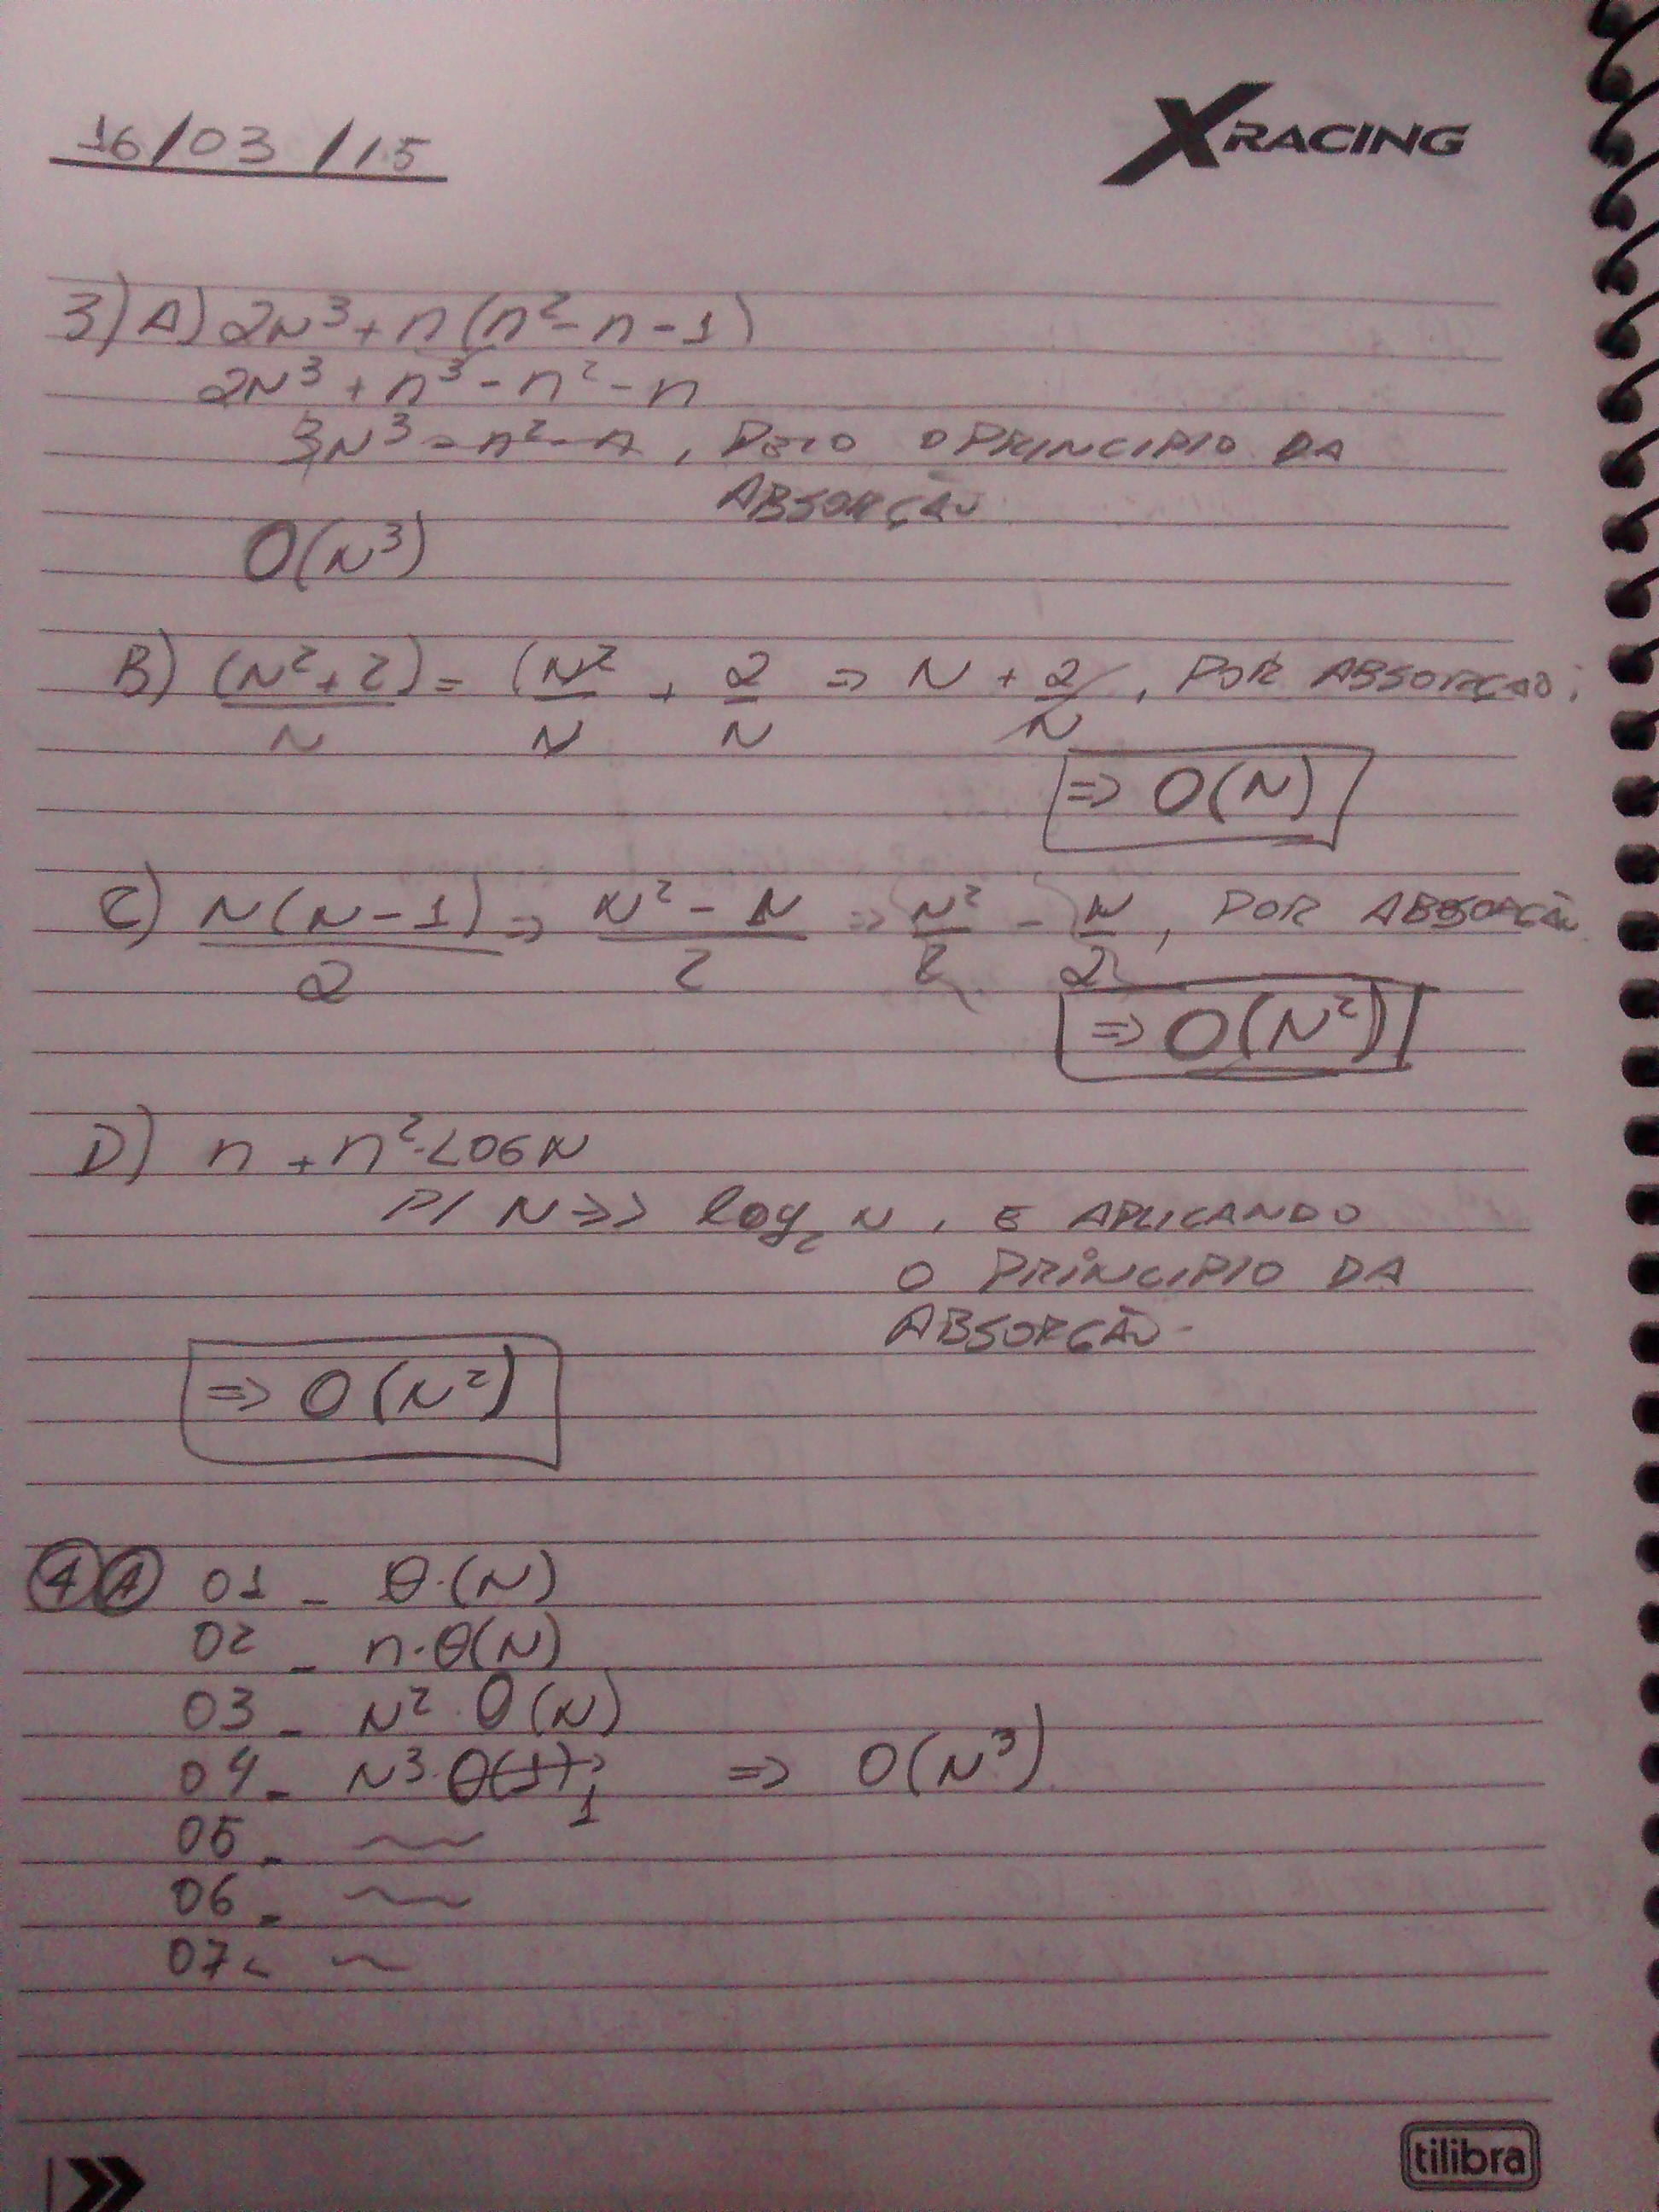 16/03/15
XRACING
3) A) 2N³ + n(n² - n - 1)
2N³ + n³ - n² - n
3N³ - n² - n, PELO O PRINCIPIO DA
ABSORÇÃO
O(N³)
B) (N² + 2)/N = (N²/N + 2/N => N + 2/N, POR ABSORÇÃO;
=> O(N)
C) N(N-1)/2 => N² - N/2 => N²/2 - N/2, POR ABSORÇÃO
=> O(N²)
D) n + n²·LOG N
P/ N >>> log₂ N, E APLICANDO
O PRINCIPIO DA
ABSORÇÃO-
=> O(N²)
4 A 01 - θ·(N)
02 - n·θ(N)
03 - N²·θ(N)
04 - N³·θ(1) 1 => O(N³)
05 - ~
06 - ~
07 - ~
tilibra